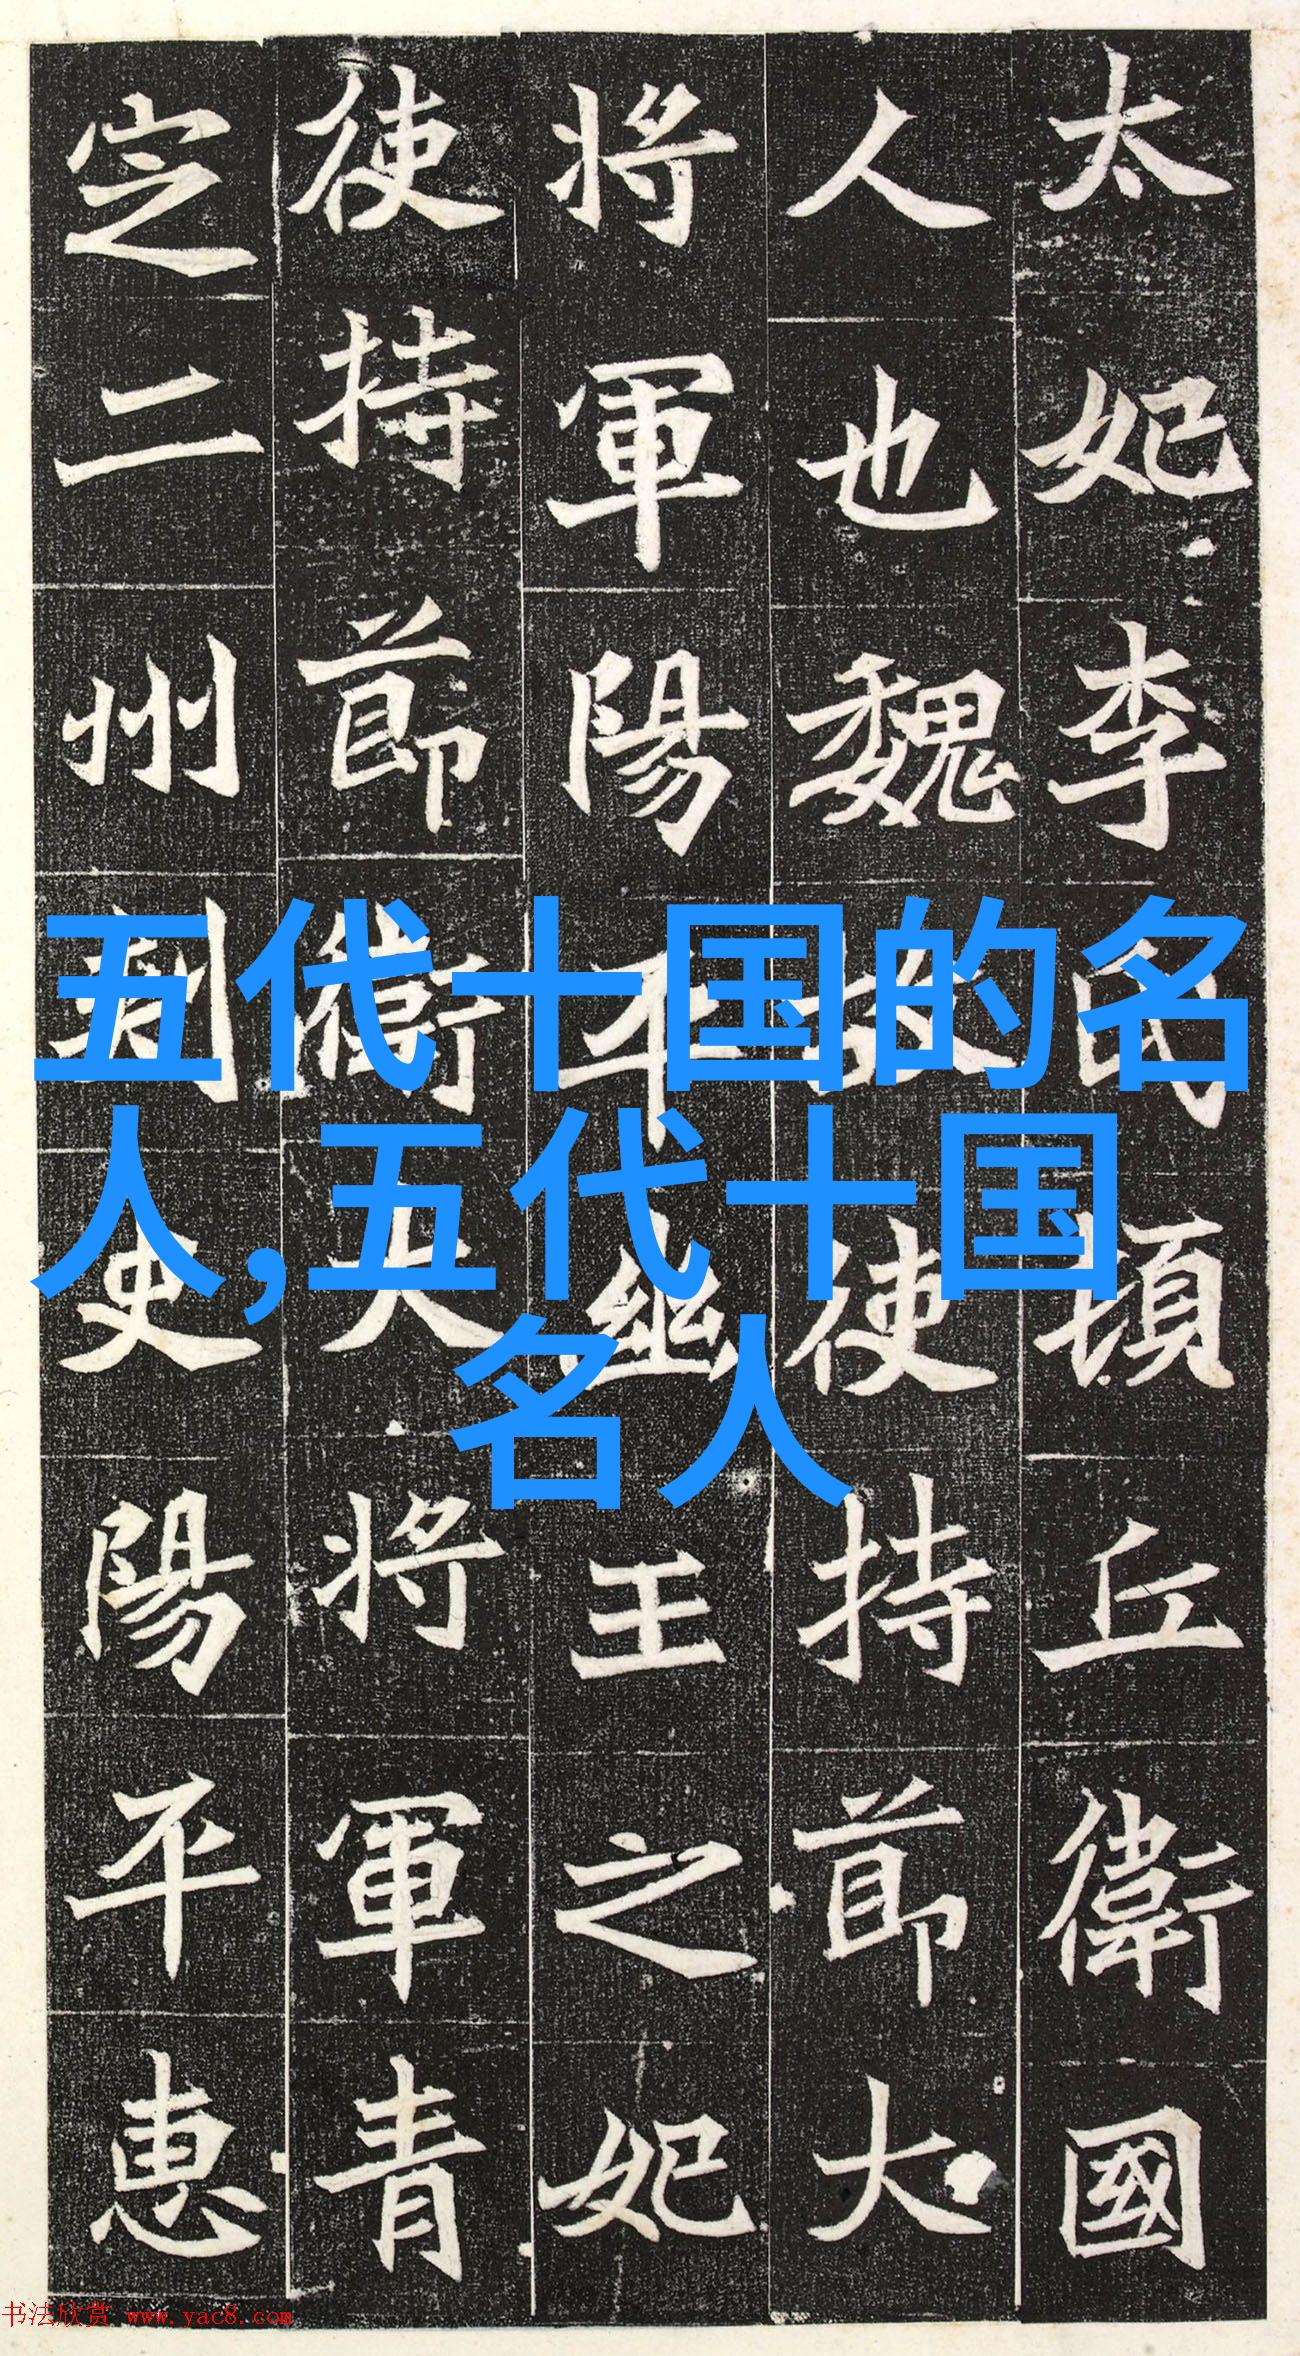 太妃李氏頓丘衛國
人也魏故使持節大
將軍陽平幽王之妃
使持節衛大將軍青
定二州刺史陽平惠
五代十国的名
人,五代十国
名人
书法欣赏 www.yac8.com